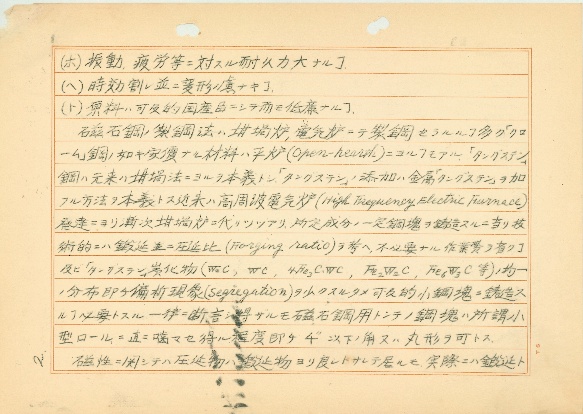 (ホ) 振動、疲労等ニ対スル耐久力大ナルヿ.
(ヘ) 時効割レ並ニ変形ノ虞ナキヿ.
(ト) 原料ハ可及的国産品ニシテ而モ低廉ナルヿ.
石磁石鋼ノ製鋼法ハ坩堝炉, 電気炉ニテ製鋼セラルルヿ多ク「クロ
ーム」鋼ノ如キ安価ナル材料ハ平炉(Open-hearth)ニヨルモアル.「タングステン」
鋼ハ元来ハ坩堝法ニヨルヲ本義トシ「タングステン」ノ添加ハ金属「タングステン」ヲ加
フル方法ヲ本義トス 近来ハ高周波電気炉(High Frequency Electric Furnace)
発達ニヨリ漸次坩堝炉ニ代リツツアリ. 所定成分ノ一定鋼塊ヲ鋳造スルニ当リ技
術的ニハ鍛延並ニ圧延比(Forging ratio)ヲ考ヘ, 不必要ナル作業ヲ省クヿ
及ビ「タングステン」炭化物(WC, 4Fe₃C・WC, 等)ノ均一
ノ分布即チ偏析現象(Segregation)ヲ小クスルタメ可及的小鋼塊ニ鋳造ス
ルヲ必要トスル 一律ニ断言シ得ザルモ磁石鋼用トシテノ鋼塊ハ所謂小
型ロールニ直ニ噛マセ得ル程度即チ 4" 以下ノ角又ハ丸形ヲ可トス.
磁性ニ関シテハ圧延物ハ鍛延物ヨリ良シトサレテ居ルモ, 実際ニハ鍛延ト
2.